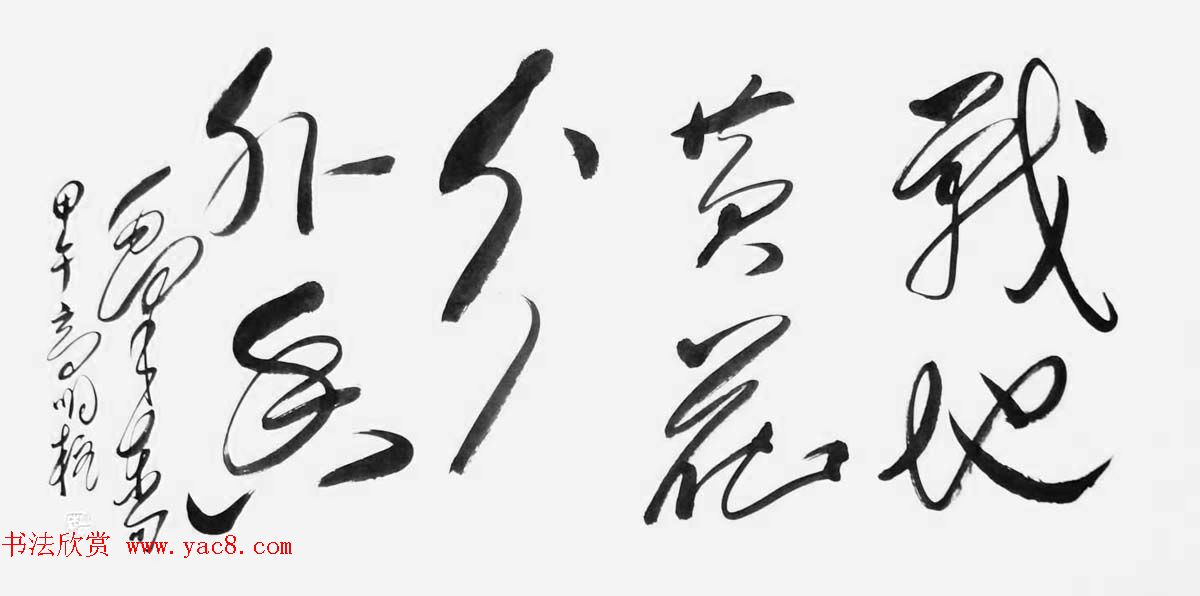 戰地
黄花
分
外香
甲午高明
书法欣赏 www.yac8.com